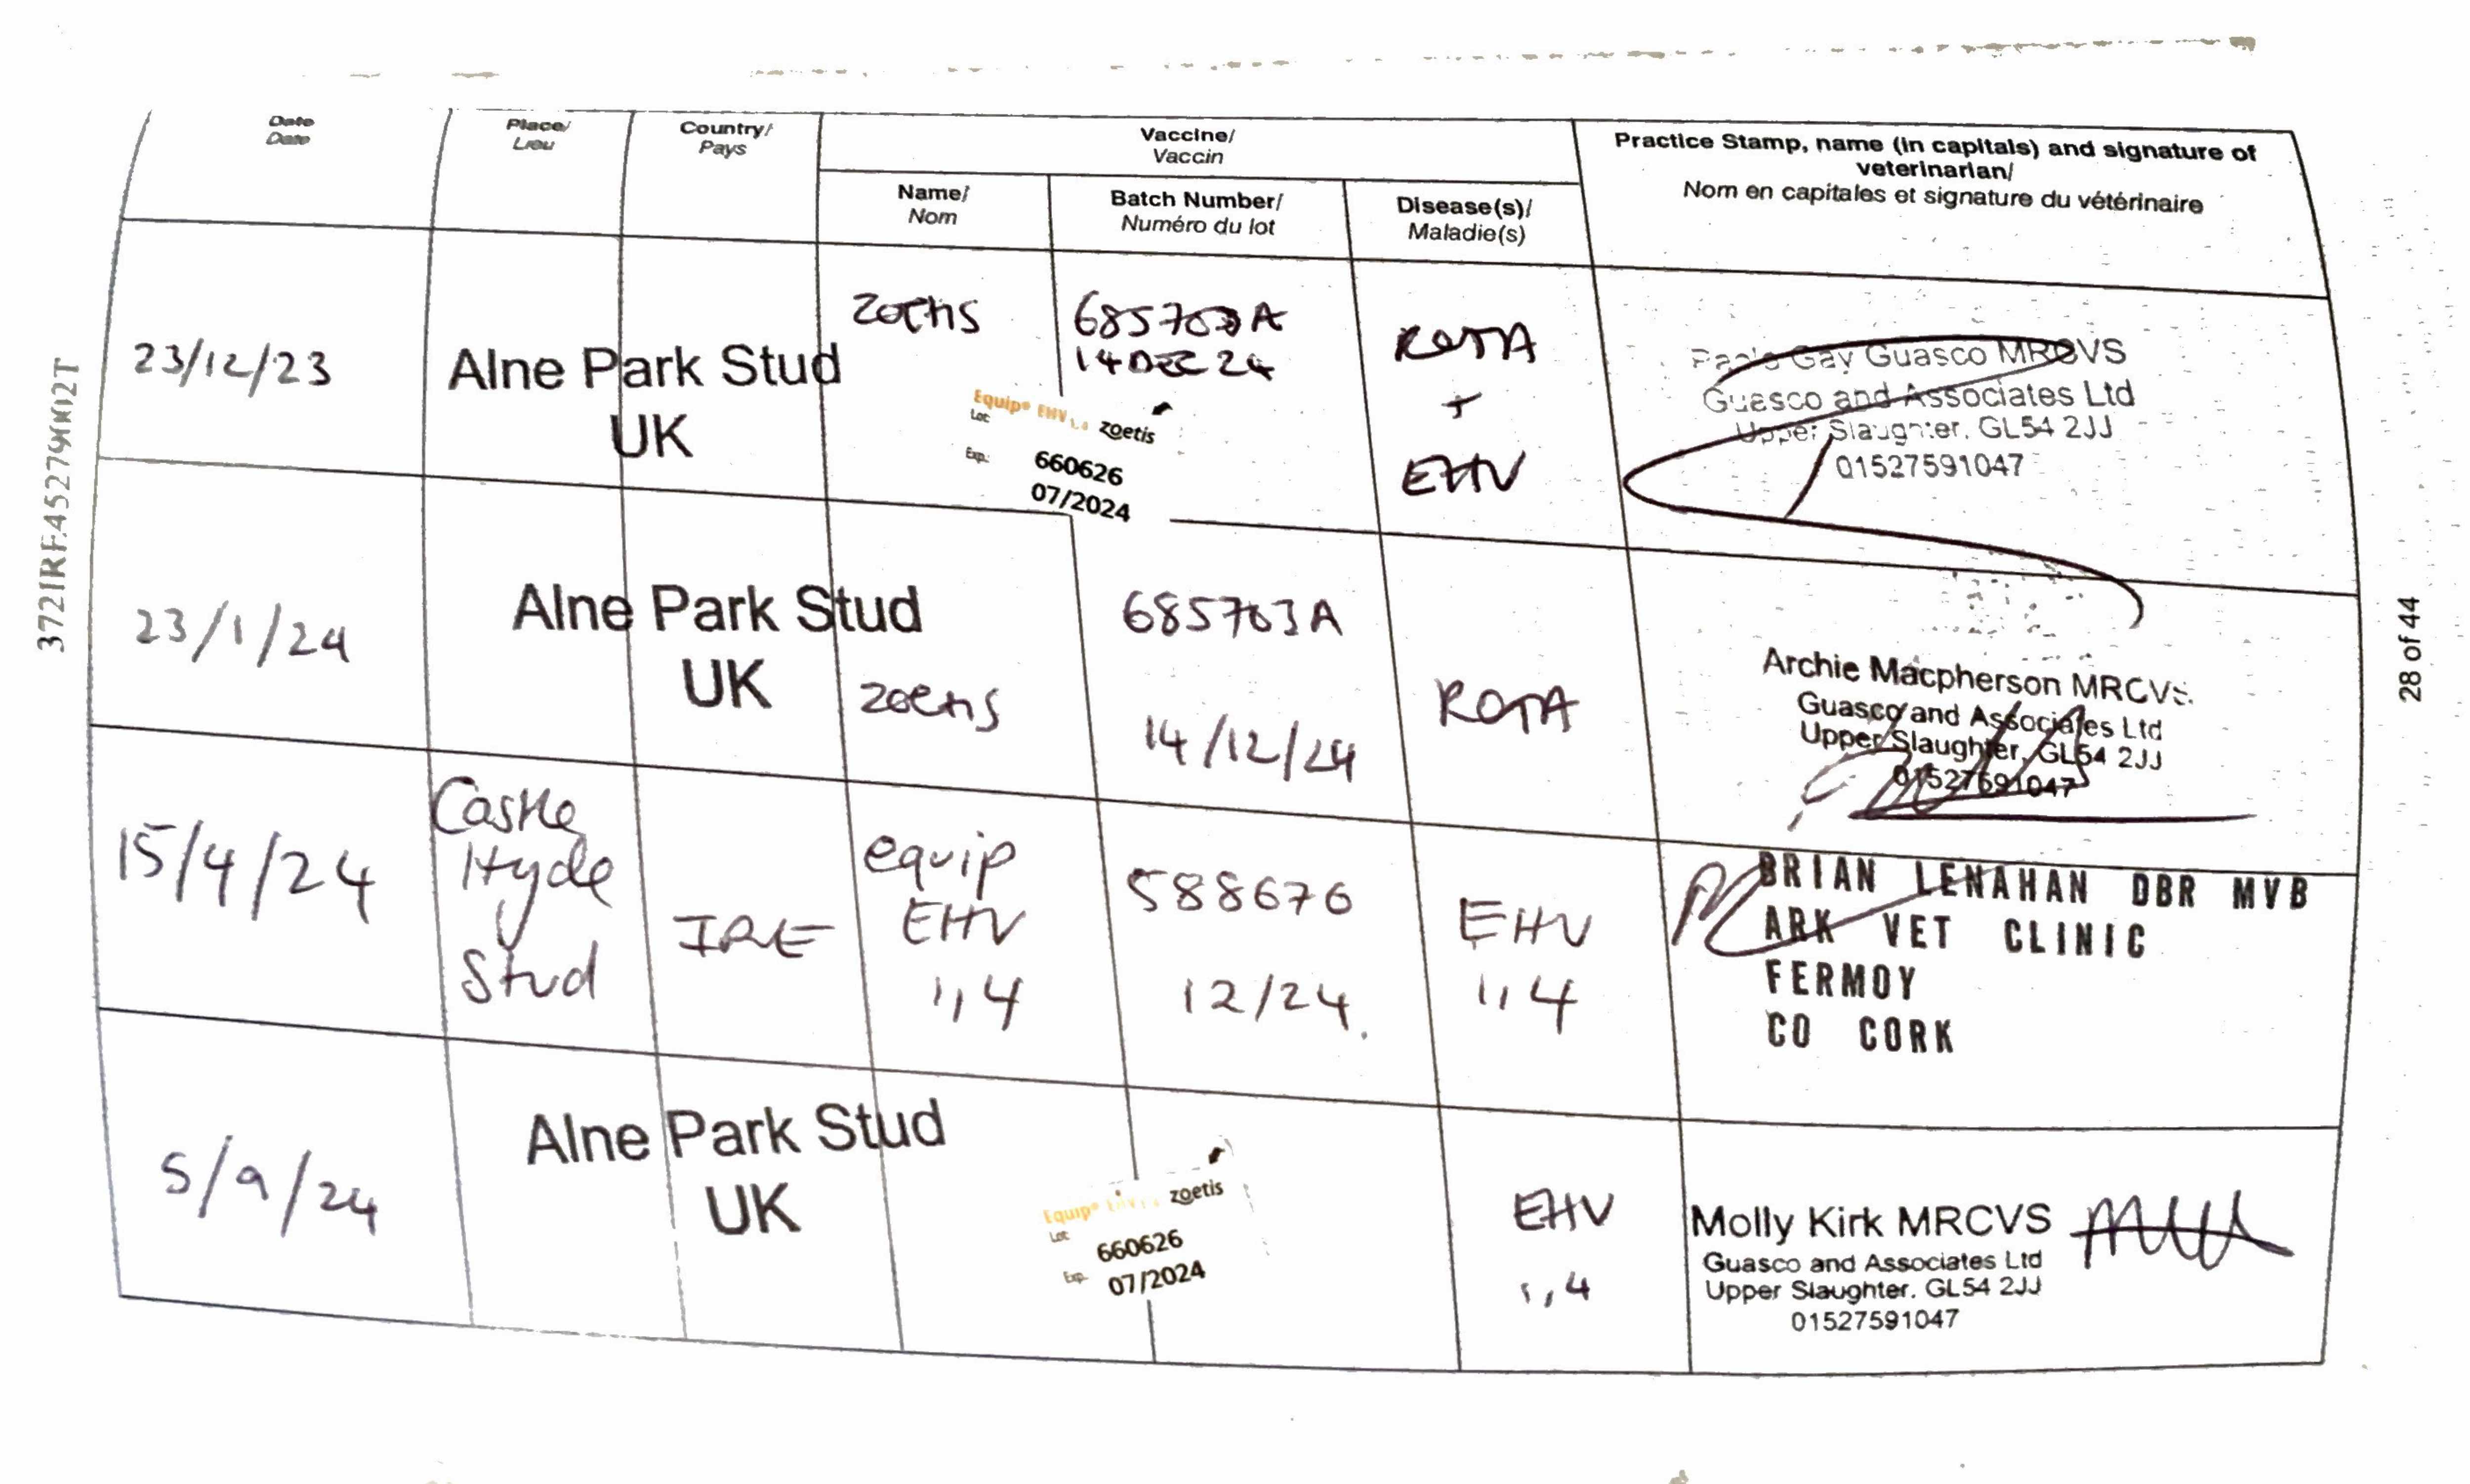 Date
Date
Place/
Lieu
Country/
Pays
Vaccine/
Vaccin
Name/
Nom
Batch Number/
Numéro du lot
Disease(s)/
Maladie(s)
Practice Stamp, name (in capitals) and signature of
veterinarian/
Nom en capitales et signature du vétérinaire
23/12/23
Alne Park Stud
UK
Zoetis
685703A
14 DEC 24
Equip® EHV 1,4 zoetis
Lot:
Exp.:
660626
07/2024
ROTA
+
EHV
Gay Guasco MRCVS
Guasco and Associates Ltd
Upper Slaughter, GL54 2JJ
01527591047
23/1/24
Alne Park Stud
UK
Zoetis
685703A
14/12/24
ROTA
Archie Macpherson MRCVS.
Guasco and Associates Ltd
Upper Slaughter, GL54 2JJ
01527591047
15/4/24
Castle
Hyde
Stud
IRE
equip
EHV
1,4
588676
12/24.
EHV
1,4
BRIAN LENAHAN DBR MVB
ARK VET CLINIC
FERMOY
CO CORK
5/9/24
Alne Park Stud
UK
Equip® zoetis
Lot:
660626
Exp.
07/2024
EHV
1,4
Molly Kirk MRCVS
Guasco and Associates Ltd
Upper Slaughter. GL54 2JJ
01527591047
28 of 44